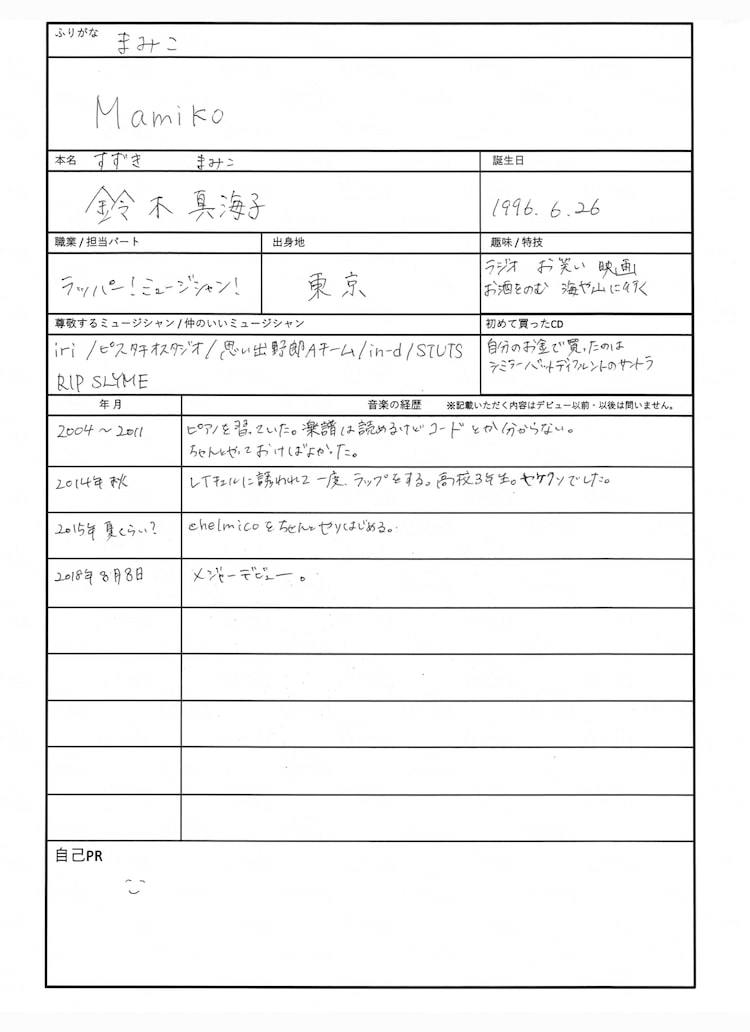 ふりがな まみこ
Mamiko
本名 すずき まみこ 誕生日
鈴木 真海子 1996. 6. 26
職業 / 担当パート 出身地 趣味 / 特技
ラッパー！ミュージシャン！ 東京 ラジオ お笑い 映画
お酒をのむ 海や山に行く
尊敬するミュージシャン / 仲のいいミュージシャン 初めて買ったCD
iri / ピスタチオスタジオ / 思い出野郎Aチーム / in-d / STUTS
RIP SLYME
自分のお金で買ったのは
シミラーバットディファレントのサントラ
年 月 音楽の経歴 ※記載いただく内容はデビュー以前・以後は問いません。
2004～2011 ピアノを習っていた。楽譜は読めるけどコードとか分からない。
ちゃんとやっておけばよかった。
2014年 秋 レイチェルに誘われて一度、ラップをする。高校3年生。ヤケクソでした。
2015年 夏くらい？ chelmicoをちゃんとやりはじめる。
2018年 8月8日 メジャーデビュー。
自己PR